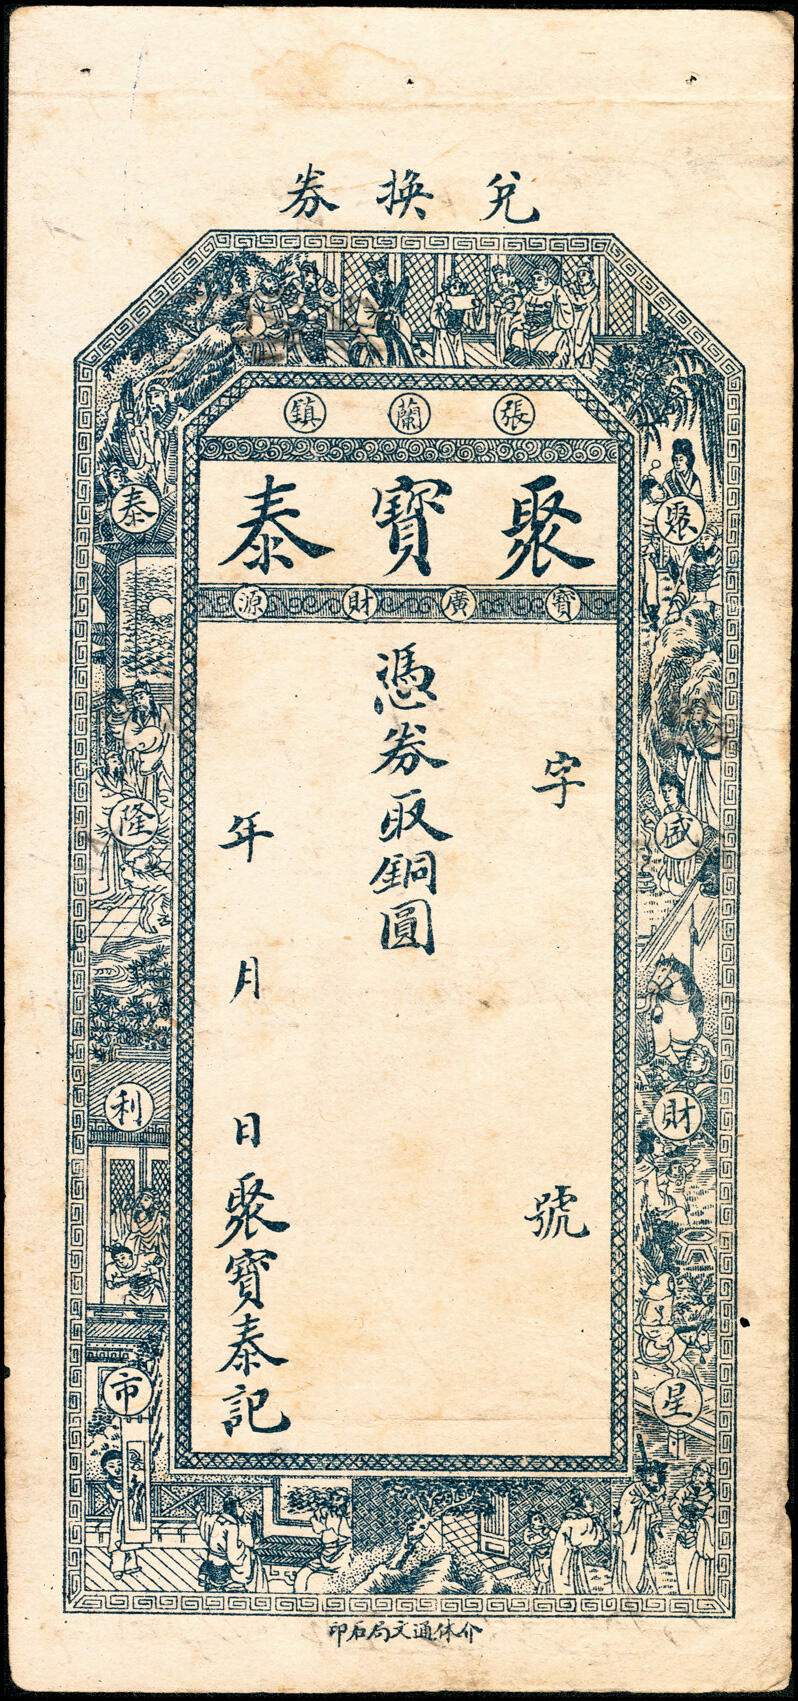 兌換券
張蘭鎮
聚寶泰
寳廣財源
聚咸財星
泰隆利市
字號
憑券取銅圓
年月日聚寶泰記
介休通文局石印